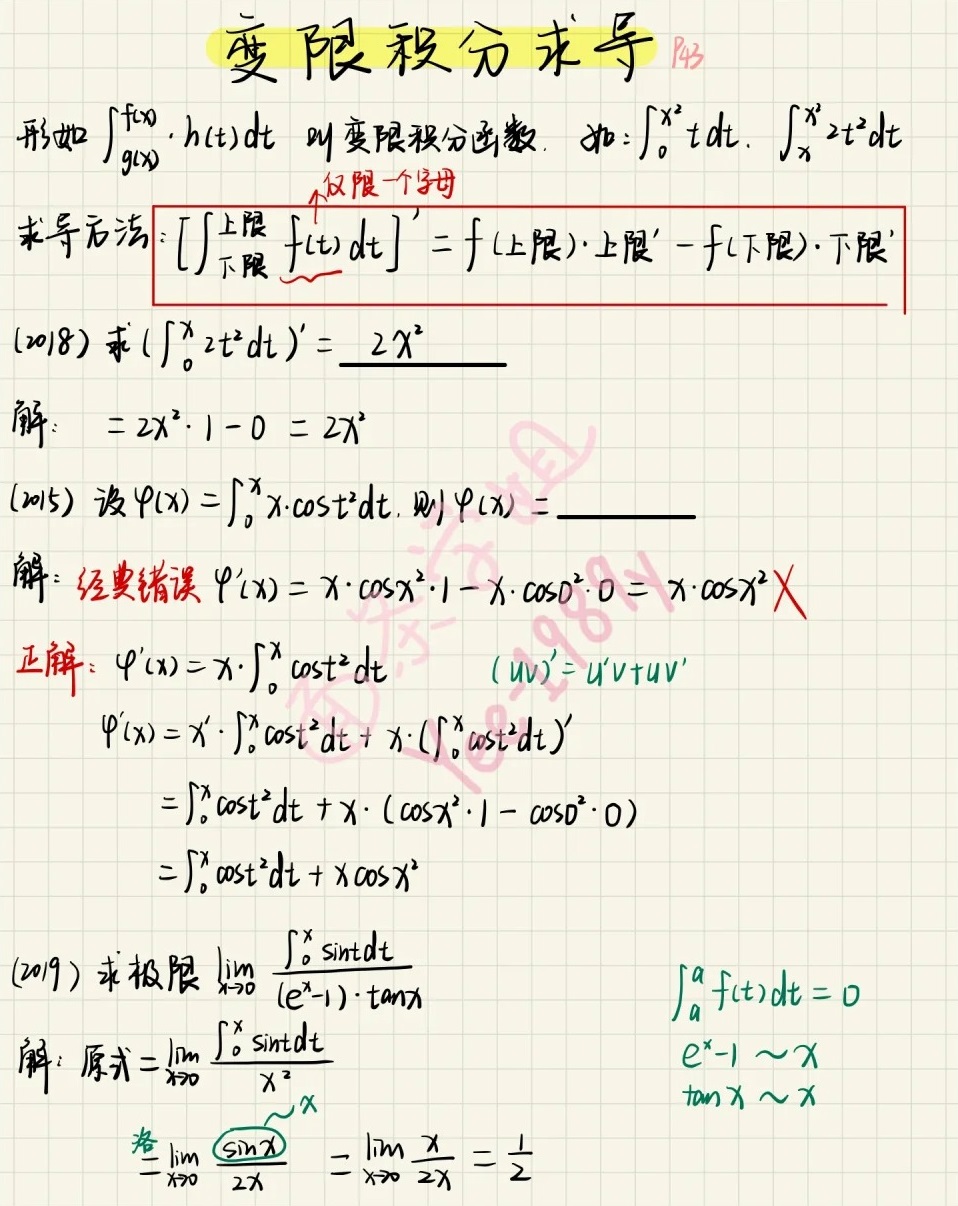 变限积分求导 P43
形如 ∫_{g(x)}^{f(x)}·h(t)dt 叫变限积分函数. 如:∫_0^{x²} t dt. ∫_x^{x²} 2t²dt
仅限一个字母
求导方法:[∫_{下限}^{上限} f(t)dt]' = f(上限)·上限' - f(下限)·下限'
(2018) 求(∫_0^x 2t²dt)' = 2x²
解: = 2x²·1-0 = 2x²
(2015) 设φ(x) = ∫_0^x x·cost²dt. 则φ(x) = ______
解:经典错误 φ'(x) = x·cosx²·1 - x·cos0²·0 = x·cosx² X
正解:φ'(x) = x·∫_0^x cost²dt (uv)' = u'v+uv'
φ'(x) = x'·∫_0^x cost²dt + x·(∫_0^x cost²dt)'
= ∫_0^x cost²dt + x·(cosx²·1 - cos0²·0)
= ∫_0^x cost²dt + xcosx²
(2019) 求极限 lim_{x→0} ∫_0^x sintdt / (e^x-1)·tanx
∫_a^a f(t)dt = 0
解:原式 = lim_{x→0} ∫_0^x sintdt / x²
e^x-1 ~ x
tanx ~ x
~x
洛 = lim_{x→0} sinx / 2x = lim_{x→0} x / 2x = 1/2
Yee-1989y